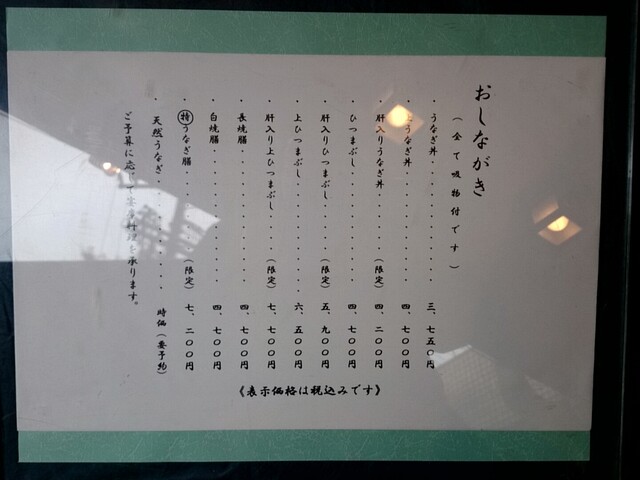 おしながき
(全て吸物付です)
・うなぎ丼・・・・・・・・・・・三、七五〇円
うなぎ丼・・・・・・・・・・・四、七〇〇円
・肝入りうなぎ丼・・・・(限定)四、二〇〇円
・ひつまぶし・・・・・・・・・・四、七〇〇円
・肝入りひつまぶし・・・(限定)五、九〇〇円
・上ひつまぶし・・・・・・・・・六、五〇〇円
・肝入り上ひつまぶし・・(限定)七、七〇〇円
・長焼膳・・・・・・・・・・・・四、七〇〇円
・白焼膳・・・・・・・・・・・・四、七〇〇円
・㊕うなぎ膳・・・・・・(限定)七、二〇〇円
・天然うなぎ・・・・・・・・・・時価(要予約)
ご予算に応 料理を承ります。
《表示価格は税込みです》